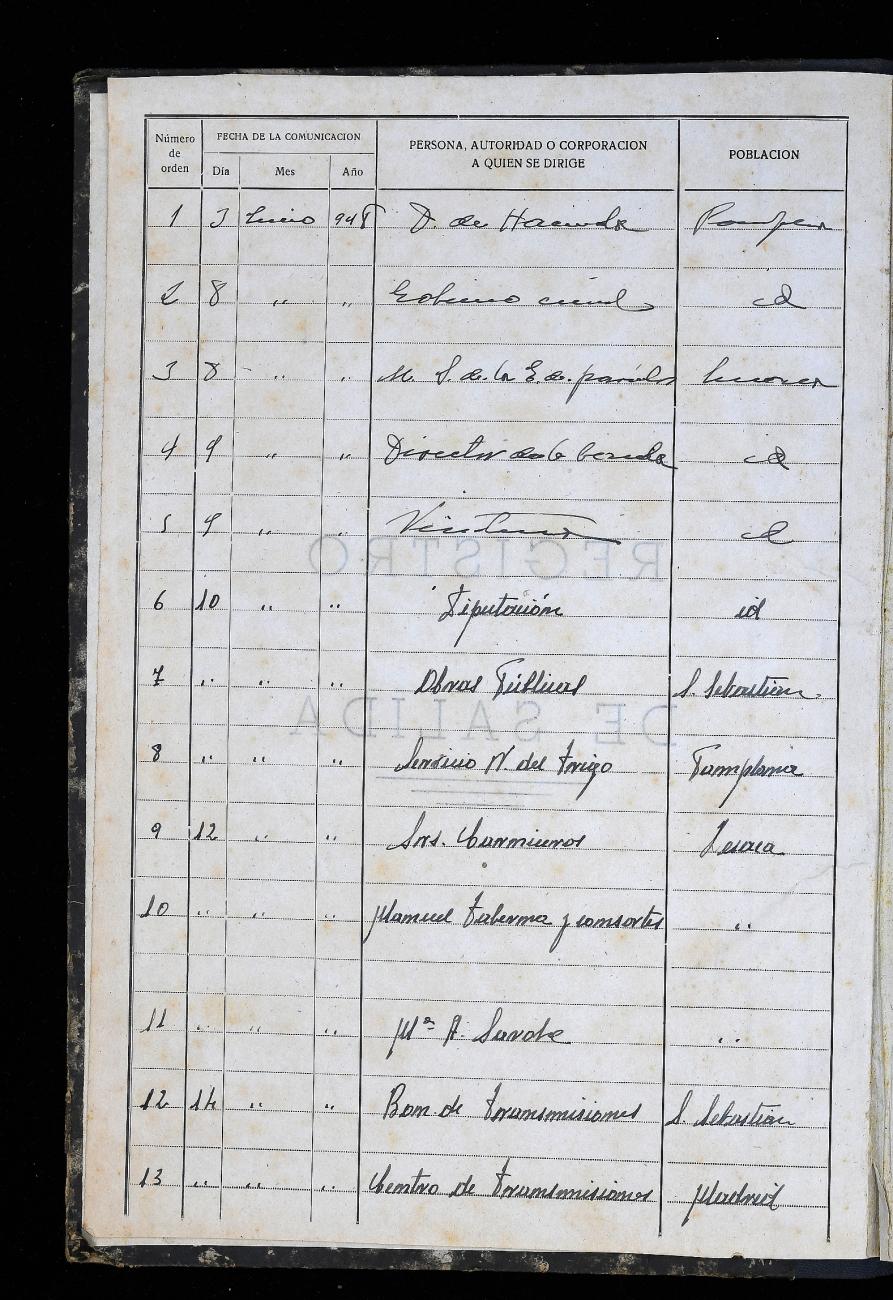 Número de orden
FECHA DE LA COMUNICACION
Día Mes Año
PERSONA, AUTORIDAD O CORPORACION
A QUIEN SE DIRIGE
POBLACION
1 3 94 D. de Hacienda
2 8 " " Gobierno civil id
3 8 " " M. S. de la E. de párvulos
4 9 " " Director de la id
5 9 " " id
6 10 " " Diputación id
7 " " " Obras Públicas S. Sebastian
8 " " " Servicio N. del Trigo Pamplona
9 12 " " Srs. Carniceros Lesaca
10 " " " Manuel Taberna y consortes "
11 " " " Mª A. Sarobe "
12 14 " " Bon de Transmisiones S. Sebastian
13 " " " Centro de Transmisiones Madrid
REGISTRO
DE SALIDA